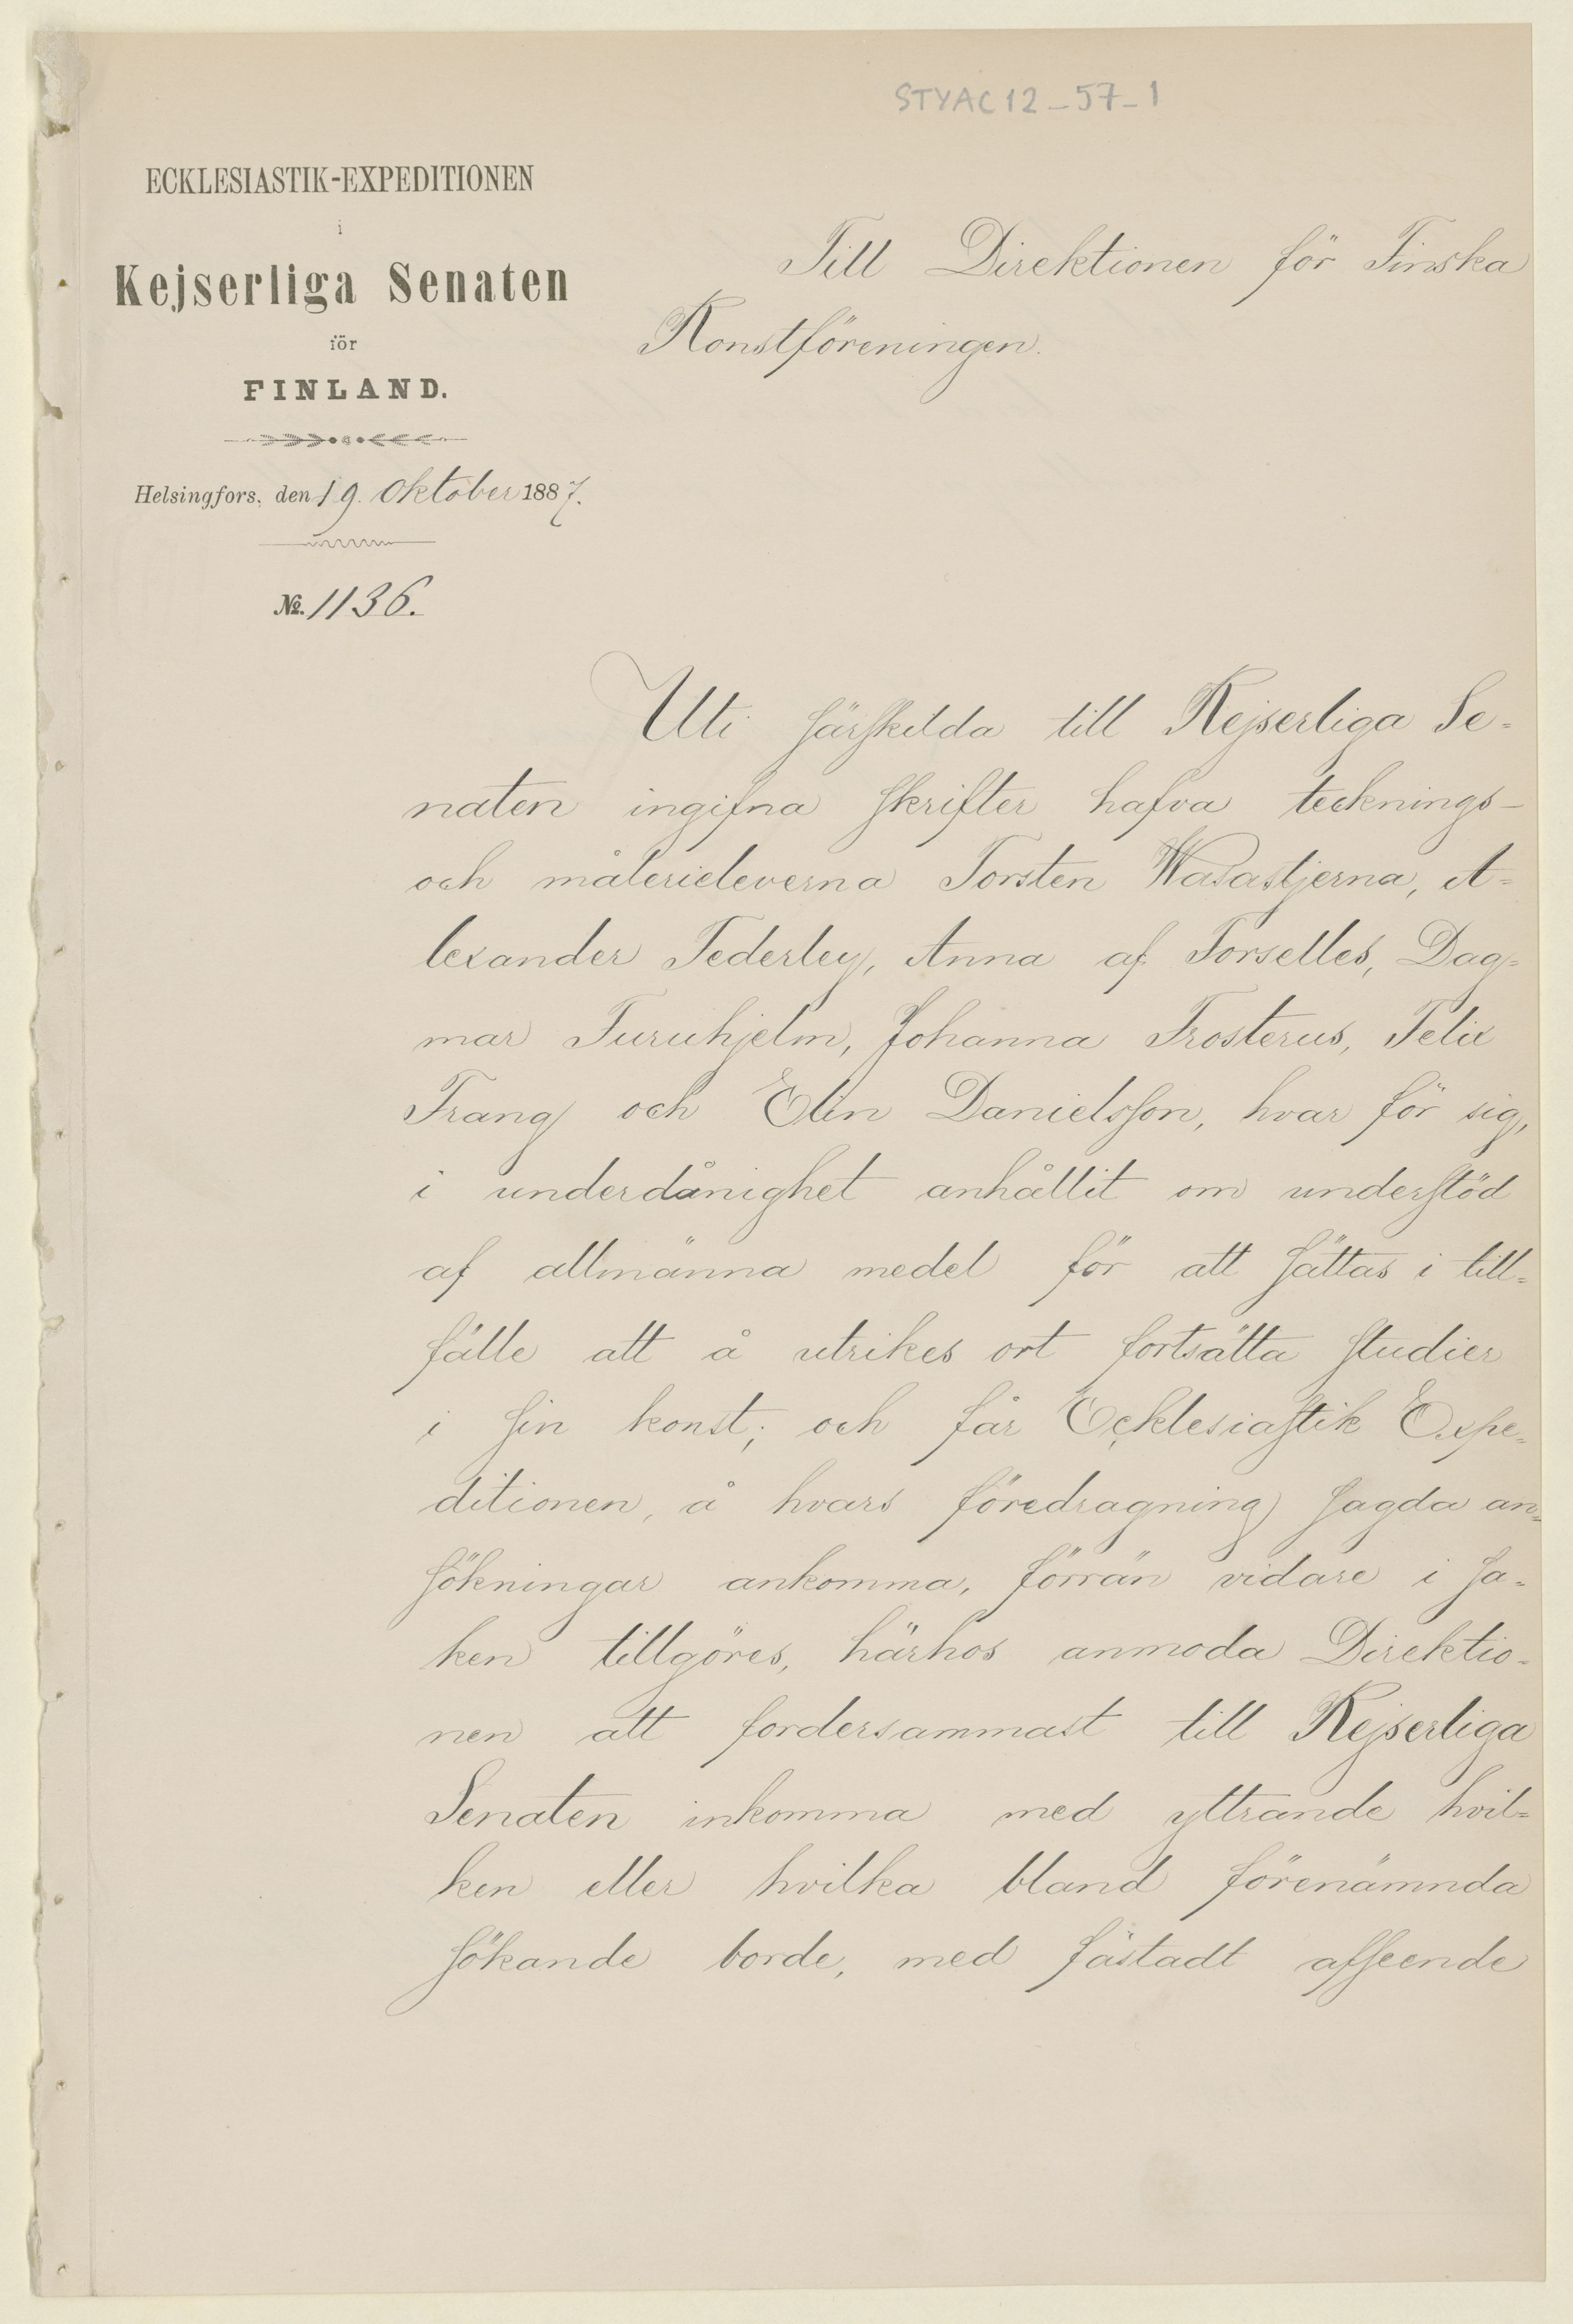 STYAC12_57_1
ECKLESIASTIK-EXPEDITIONEN
i
Kejserliga Senaten
för
FINLAND.
Helsingfors, den 19. Oktober 1887.
№. 1136.
Till Direktionen för Finska
Konstföreningen.
Uti särskilda till Kejserliga Se-
naten ingifna skrifter hafva tecknings-
och målerieleverna Torsten Wasastjerna, A-
lexander Federley, Anna af Forselles, Dag-
mar Furuhjelm, Johanna Frosterus, Felix
Frang och Elin Danielsson, hvar för sig,
i underdånighet anhållit om understöd
af allmänna medel för att sättas i till-
fälle att å utrikes ort fortsätta studier
i sin konst; och får Ecklesiastik Expe-
ditionen, å hvars föredragning sagda an-
sökningar ankomma, förrän vidare i sa-
ken tillgöres, härhos anmoda Direktio-
nen att fordersammast till Kejserliga
Senaten inkomma med yttrande hvil-
ken eller hvilka bland förenämnda
sökande borde, med fästadt afseende